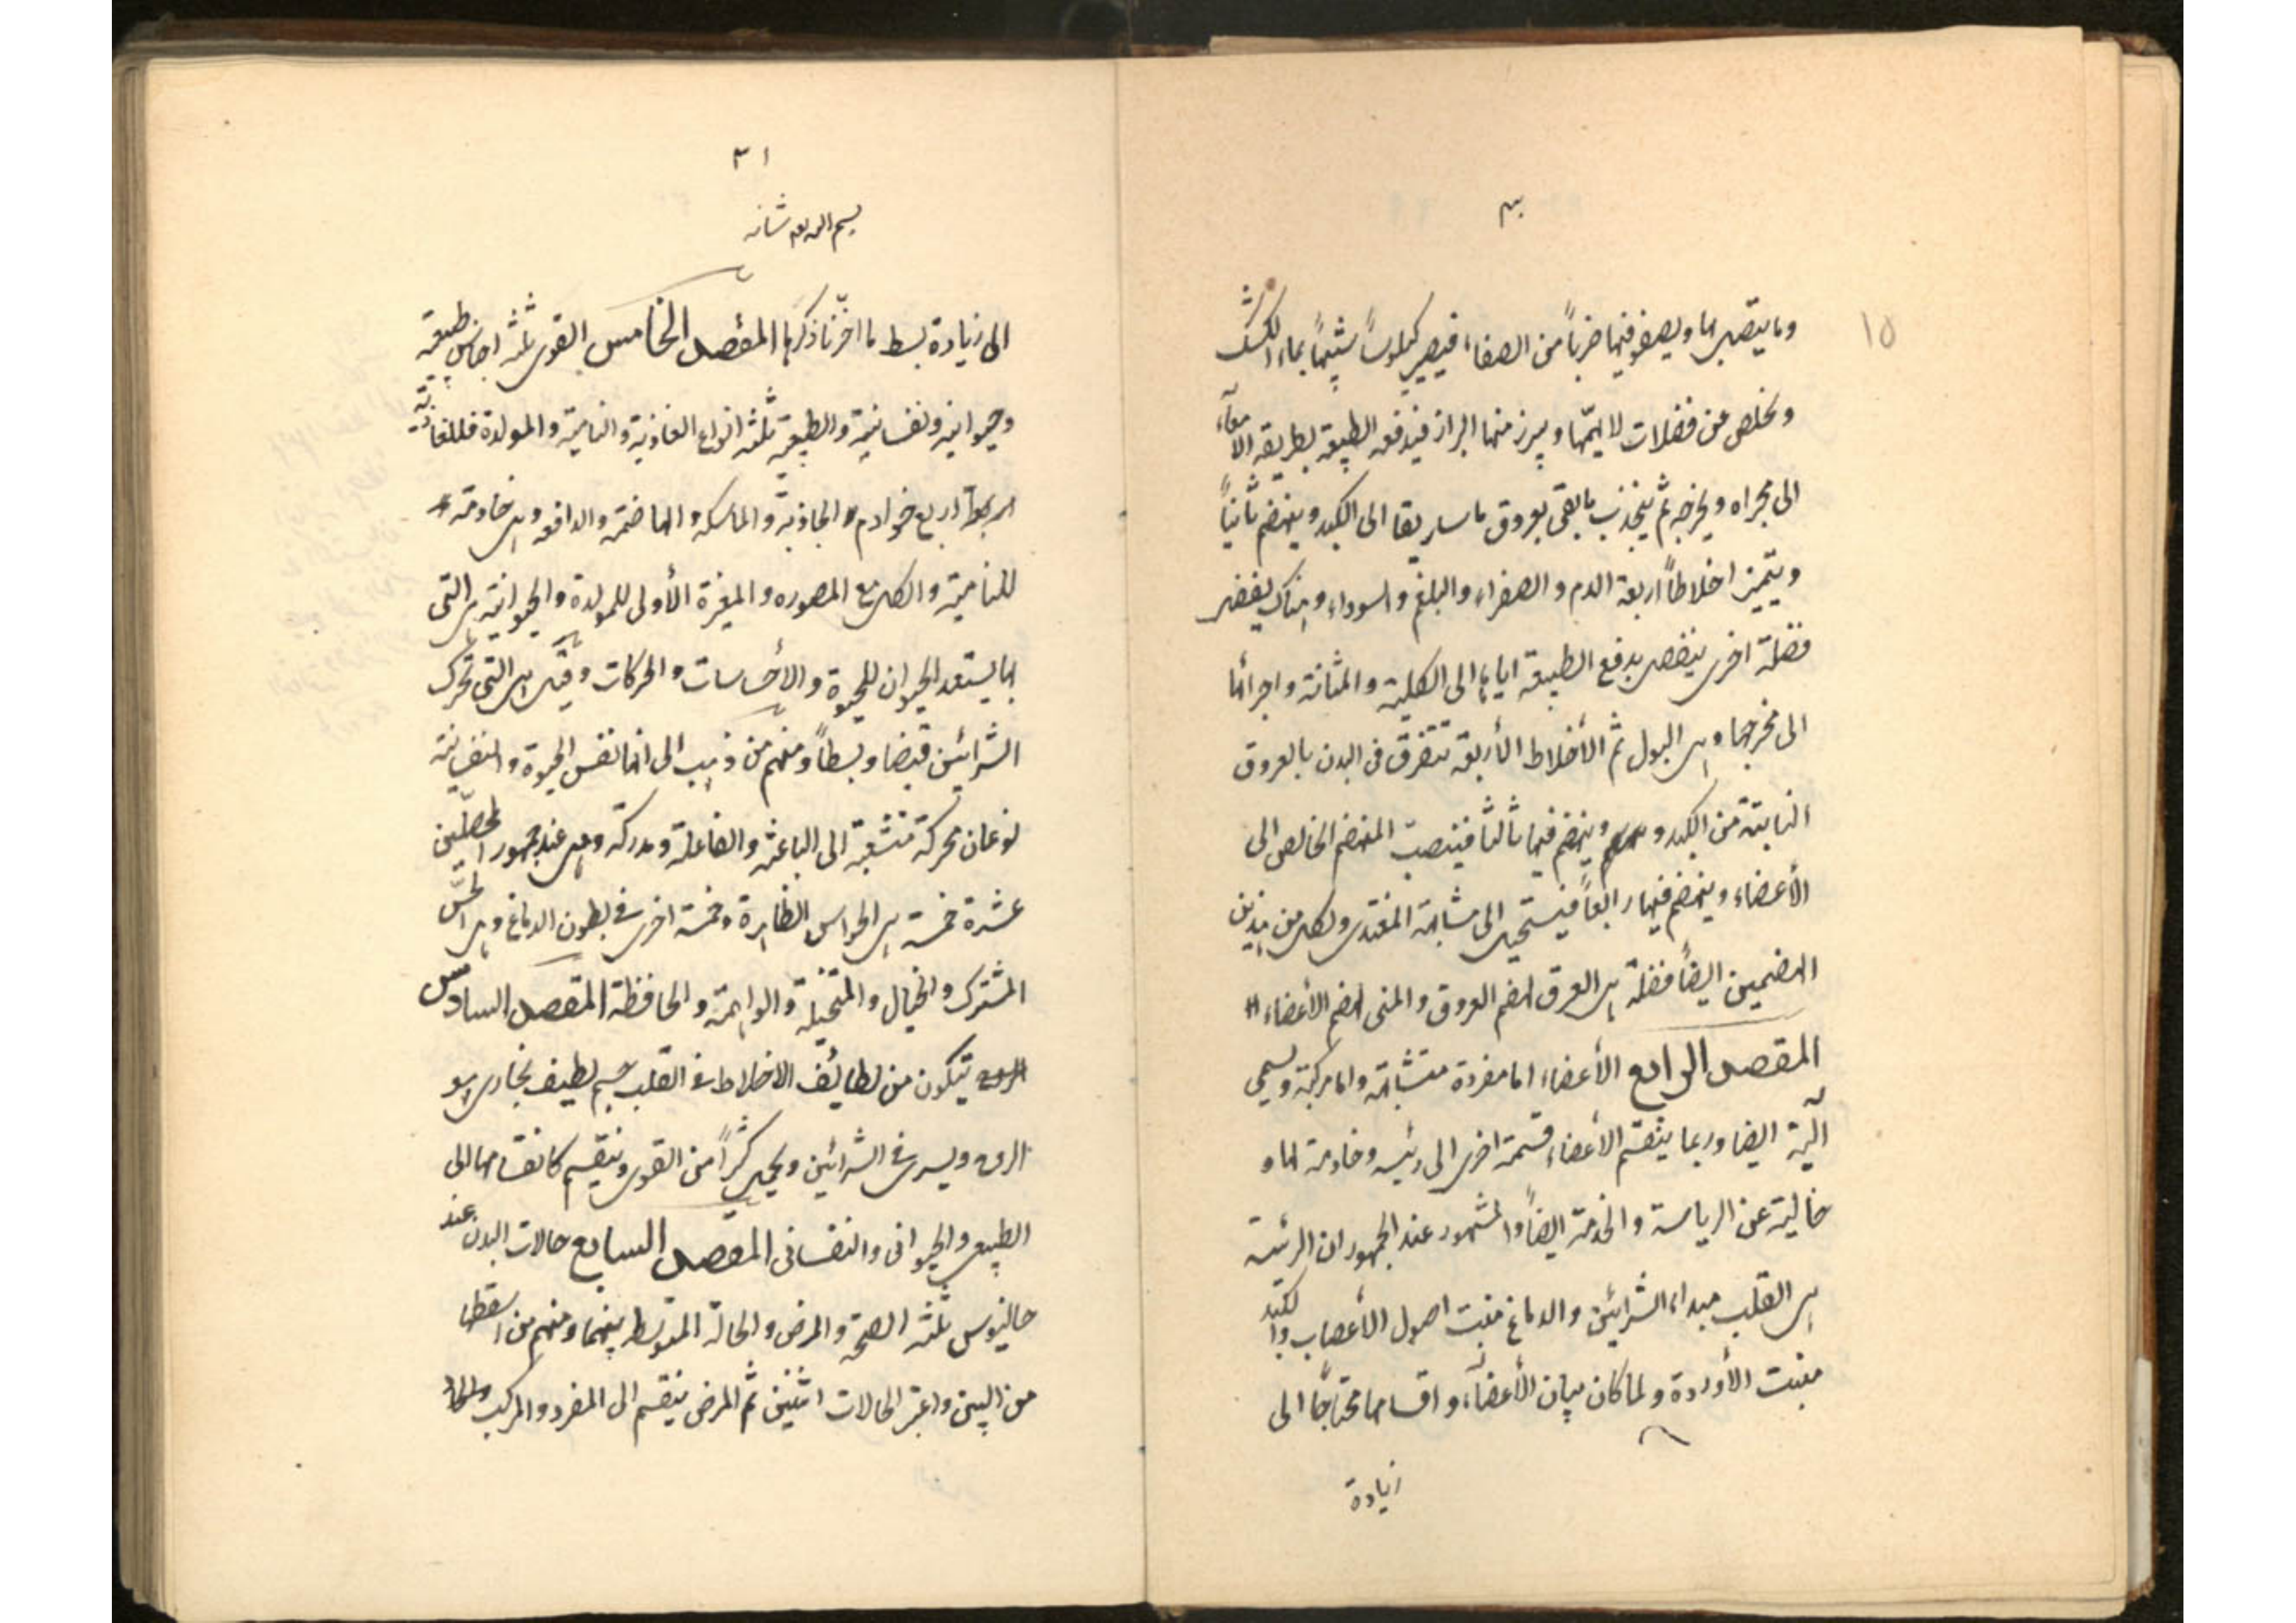 ٣٠
١٥
وما يتصل بها ويصفو فيها ضرباً من الصفاء فيصير كيلوساً شبيهاً بماء الكشك
ويخلص عن فضلات لا يهمها ويبرز منها البراز فيدفعه الطبيعة بطريقة الأمعاء
الى مجراه ويخرجه ثم ينجذب ما بقى بعروق ماساريقا الى الكبد وينهضم ثانياً
ويتميز اخلاطاً اربعة الدم والصفراء والبلغم والسوداء وهناك ينفصل
فضلة اخرى ينفصل بدفع الطبيعة اياها الى الكلية والمثانة واجرائها
الى مخرجها وهى البول ثم الأخلاط الأربعة تتفرق فى البدن بالعروق
النابتة من الكبد وينهضم فيها ثالثا فينصب المنهضم الخالص الى
الأعضاء وينهضم فيها رابعاً فيستحيل الى مشابهة المغتذى ولكل من هذين
الهضمين ايضاً فضلة هى العرق لهضم العروق والمنى لهضم الأعضاء
المقصد الرابع الأعضاء اما مفردة متشابهة واما مركبة ويسمى
آلية ايضا وربما ينقسم الأعضاء قسمة اخرى الى رئيسه وخادمة لها و
خالية عن الرياسة والخدمة ايضاً والمشهور عند الجمهور ان الرئيسة
هى القلب مبداء الشرائين والدماغ منبت اصول الأعصاب والكبد
منبت الأوردة ولما كان بيان الأعضاء واقسامها محتاجاً الى
زيادة
٣١
بسم الله شانه
الى زيادة بسط ما اخّرنا ذكرها المقصد الخامس القوى ثلثة اجناس طبيعية
وحيوانيه ونفسانية والطبيعية ثلثة انواع الغاذية والنامية والمولدة فللغاذية
اربع خوادم الجاذبة والماسكه والهاضمة والدافعه وهى خادمة
للنامية والكل مع المصوره والمغيرة الأولى للمولدة والحيوانية هى التى
بها يستعد الحيوان للحيوة والأحساسات والحركات وقيل هى التى تحرك
الشرائين قبضا وبسطاً ومنهم من ذهب الى انها نفس الحيوة والنفسانية
نوعان محركة متشعبة الى الباعثه والفاعلة ومدركة وهى عند جمهور المحصلين
عشرة خمسة هى الحواس الظاهرة وخمسة اخرى فى بطون الدماغ وهى الحسّ
المشترك والخيال والمتخيلة والواهمة والحافظة المقصد السادس
يتكون من لطائف الاخلاط فى القلب جسم لطيف بخارى هو
الروح ويسرى فى الشرائين ويحمل كثيراً من القوى وينقسم كانقسامها الى
الطبيعى والحيوانى والنفسانى المقصد السابع حالات البدن عند
جالينوس ثلثه الصحة والمرض والحالة المتوسط بينهما ومنهم من اسقطها
من البين واعتبر الحالات اثنين ثم المرض ينقسم الى المفرد والمركب